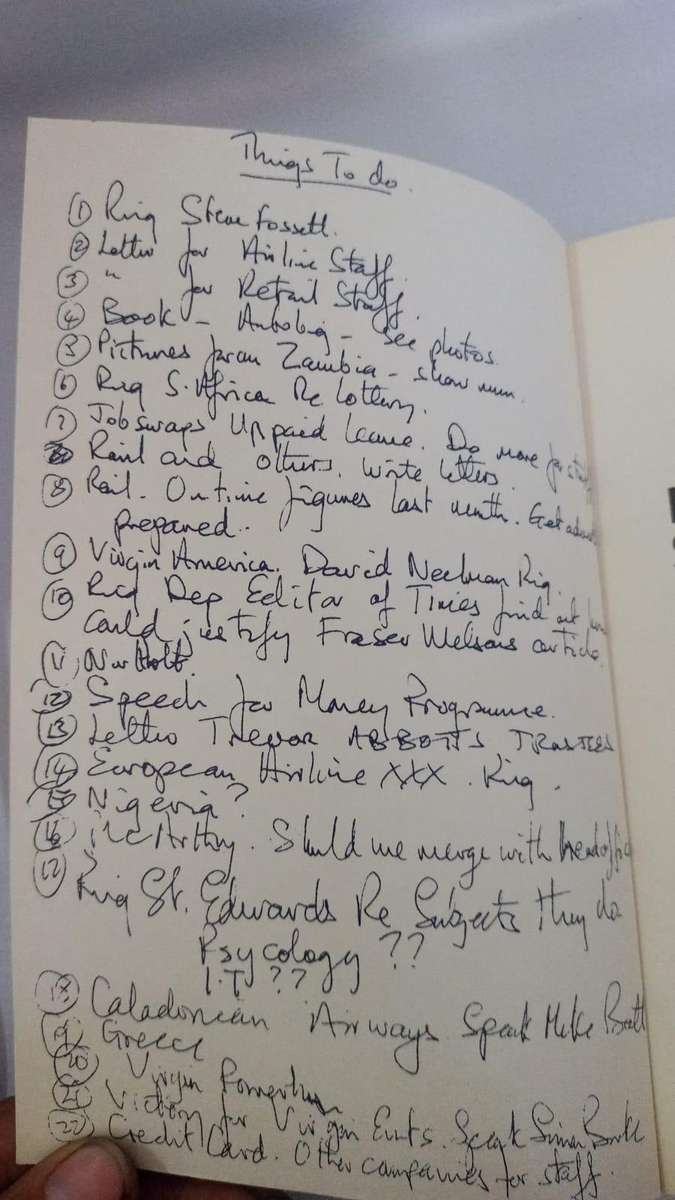 Things To do.
① Ring Steve Fossett.
② Letter for Airline Staff.
③ " for Retail Staff.
④ Book - Autobiog - see photos.
⑤ Pictures from Zambia - show mum.
⑥ Ring S. Africa Re Lottery.
⑦ Job swaps Unpaid leave. Do more for staff
Rail and others. Write letters.
⑧ Rail. On time figures last month. Get
prepared..
⑨ Virgin America. David Neelman Ring.
⑩ Ring Dep Editor of Times find out how
could justify Fraser Nelsons article.
⑪
⑫ Speech for Money Programme.
⑬ Letter Trevor ABBOTTS TRUSTEES
⑭ European Airline XXX. Ring.
⑮ Nigeria?
⑯ Should we merge with head office
⑰ Ring St. Edwards Re Subjects they do
Psycology ??
I.T ??
⑱ Caladonian Airways Speak Mike
⑲ Greece
⑳ Virgin
㉑ for Virgin Speak Simon
㉒ Credit Card. Other companies for staff.